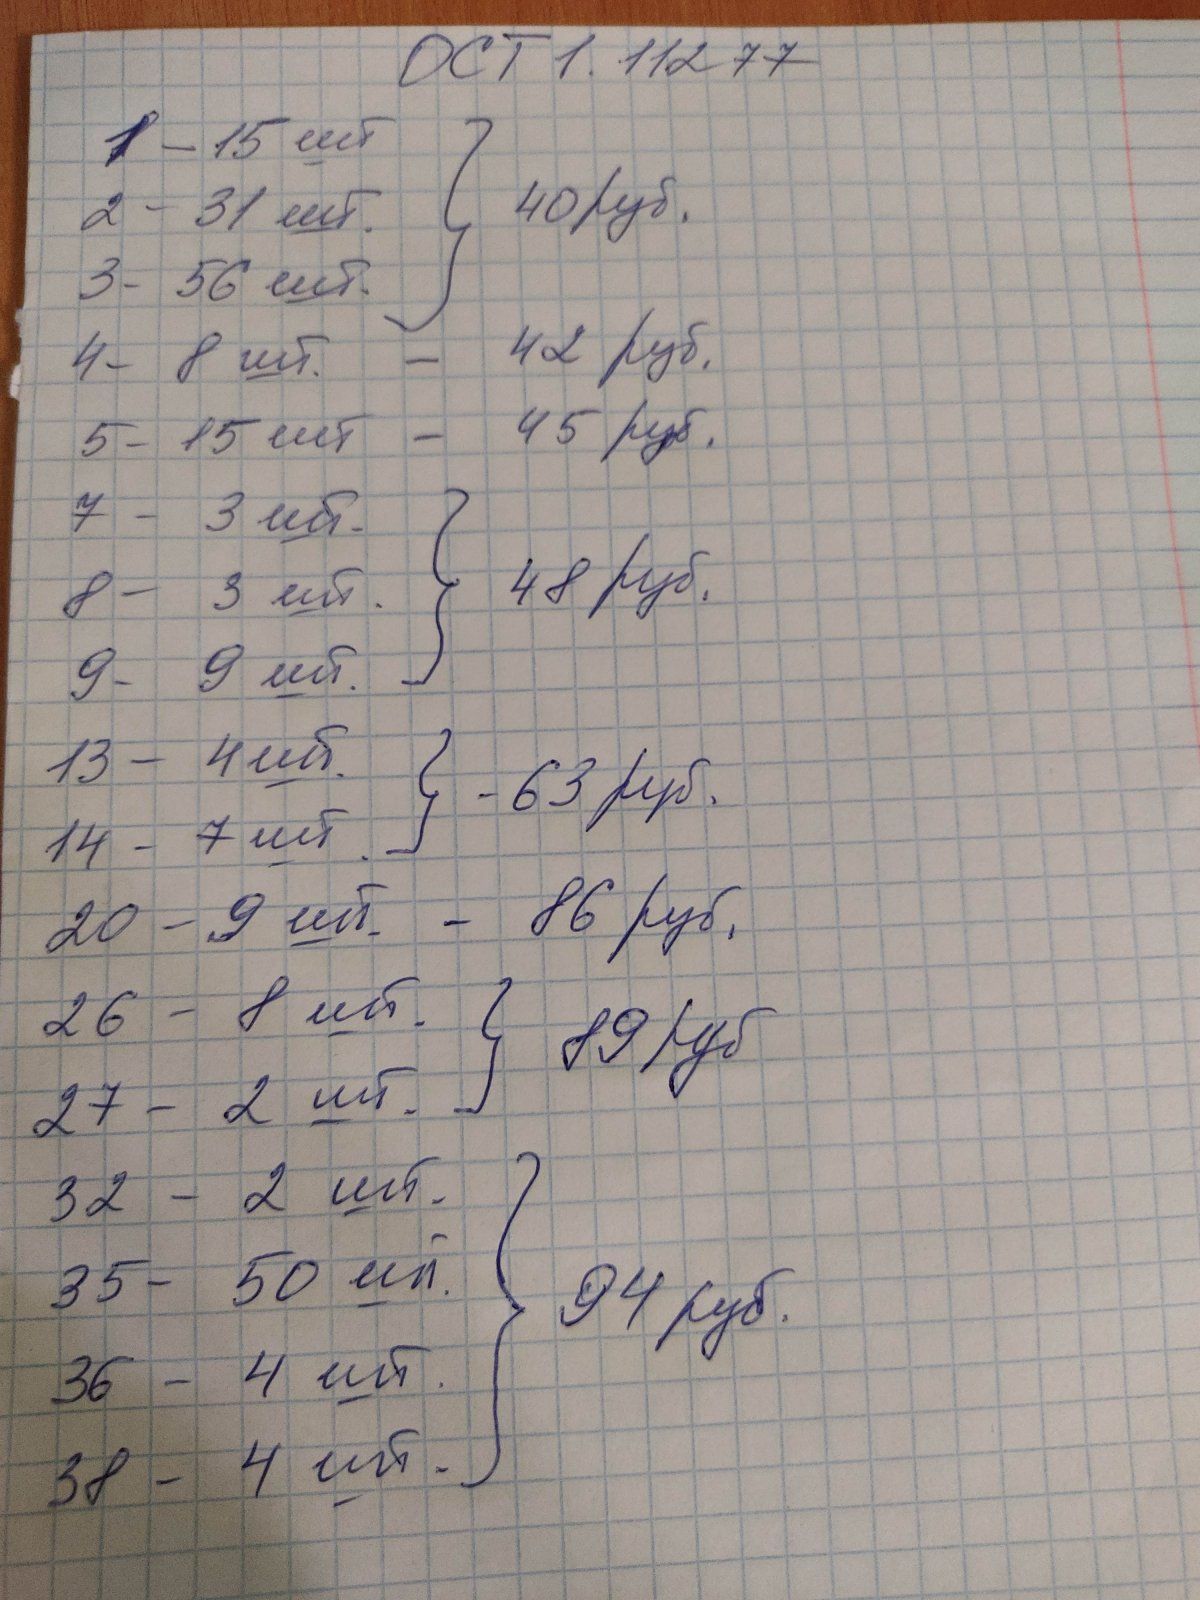 ОСТ 1.11277
1 - 15 шт
2 - 31 шт.
3 - 56 шт.
40 руб.
4 - 8 шт. - 42 руб.
5 - 15 шт - 45 руб.
7 - 3 шт.
8 - 3 шт.
9 - 9 шт.
48 руб.
13 - 4 шт.
14 - 7 шт.
- 63 руб.
20 - 9 шт. - 86 руб.
26 - 8 шт.
27 - 2 шт.
89 руб
32 - 2 шт.
35 - 50 шт.
36 - 4 шт.
38 - 4 шт.
94 руб.